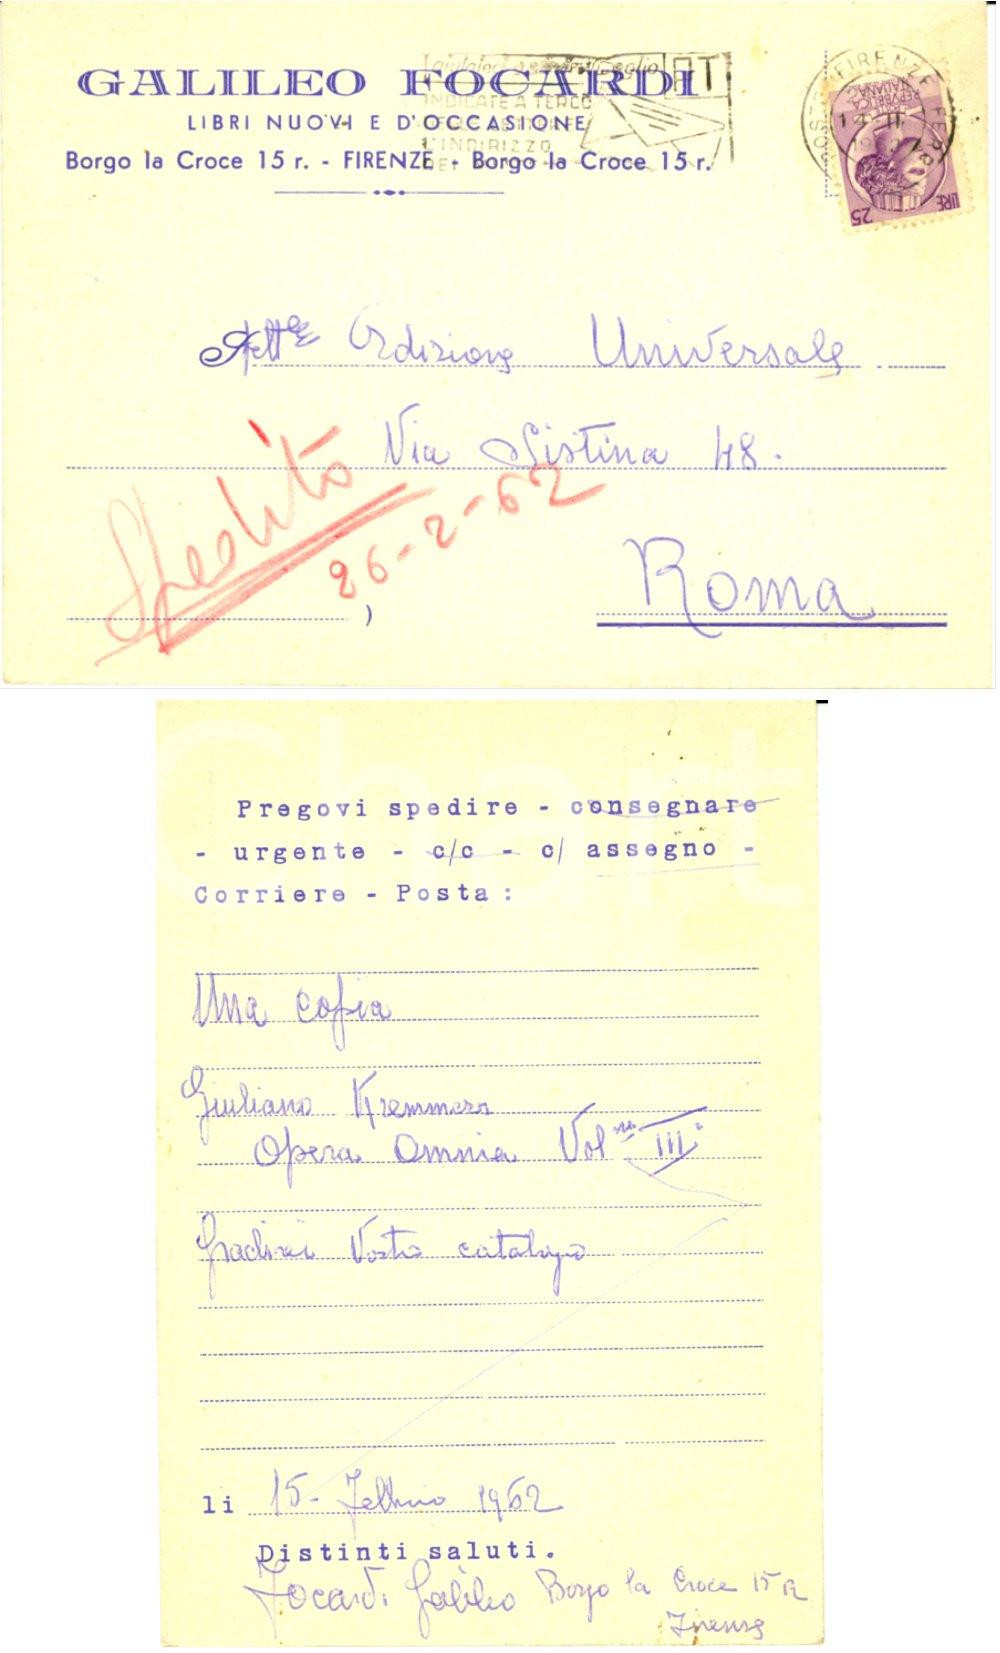 GALILEO FOCARDI
LIBRI NUOVI E D'OCCASIONE
Borgo la Croce 15 r. - FIRENZE - Borgo la Croce 15 r.
INDICATE A TERGO
L'INDIRIZZO
PT
FIRENZE FERR
14-II
REPUBBLICA
ITALIANA
LIRE 25
Spett.le Ordizione Universale
Via Sistina 48.
Roma
Spedito
26-2-62
)
Pregovi spedire - consegnare
- urgente - c/c - c/ assegno -
Corriere - Posta :
Una copia
Giuliano Kremmerz
Opera Omnia Vol III°
Gradirei Vostro catalogo
li 15 - Febbraio 1962
Distinti saluti.
Focardi Galileo Borgo la Croce 15 R
Firenze
Chart